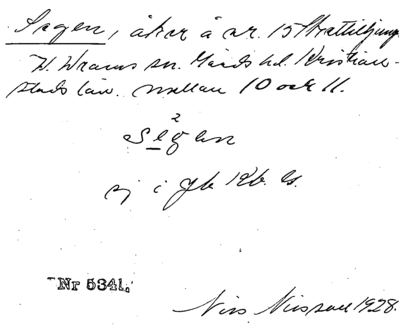 Segen, åker å nr. 15 Skättilljunga
V. Wrams sn. Gärds hd. Kristian-
stads län. mellan 10 och 11.
2
segen
ej i Jb Kb. Es.
Nr 5341.
Nils Nilsson 1928.